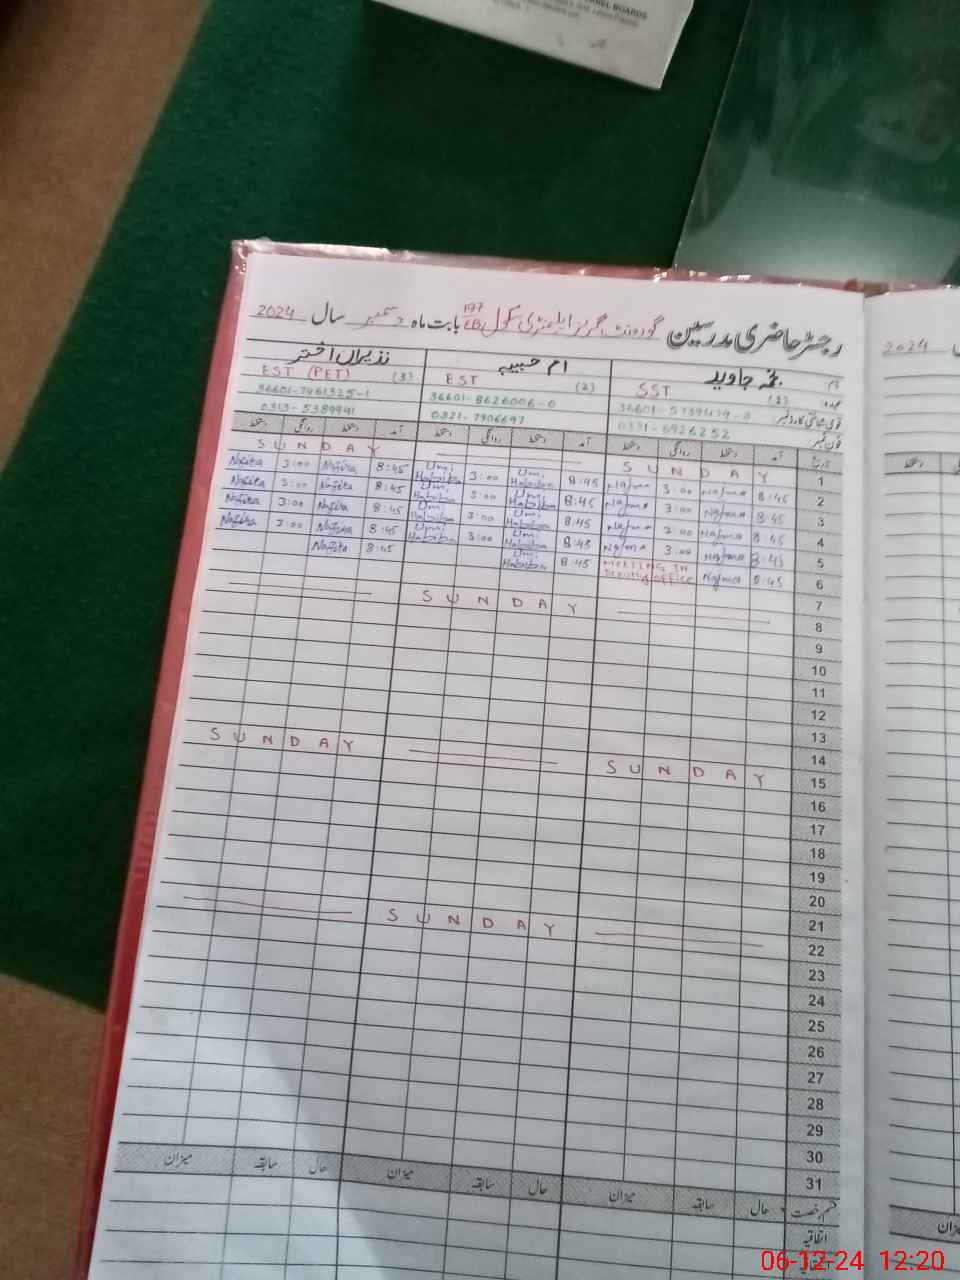 رجسٹر حاضری مدرسین گورنمنٹ گرلز ایلیمنٹری سکول 197/EB بابت ماہ دسمبر سال 2024
2024
نام نجمہ جاوید ام حبیبہ نذیراں اختر
عہدہ SST (1) EST (2) EST (PET) (3)
قومی شناختی کارڈ نمبر 36601-8626006-0 36601-7461325-1
فون نمبر 0321-7906697 0313-5389941
تاریخ آمد دستخط روانگی دستخط آمد دستخط روانگی دستخط آمد دستخط روانگی دستخط
1 SUNDAY SUNDAY
2 8:45 Najma 3:00 Najma 8:45 Um, Habiba 3:00 Um, Habiba 8:45 3:00
3 8:45 Najma 3:00 Najma 8:45 Um, Habiba 3:00 Um, Habiba 8:45 3:00
4 8:45 Najma Najma 8:45 Um, Habiba 3:00 Um, Habiba 8:45 3:00
5 8:45 Najma 3:00 Najma 8:45 Um, Habiba 3:00 Um, Habiba 8:45 3:00
6 8:45 Najma MEETING IN Deputy OFFICE 8:45 Um, Habiba 8:45
7
8 SUNDAY
9
10
11
12
13
14
15 SUNDAY SUNDAY
16
17
18
19
20
21
22 SUNDAY
23
24
25
26
27
28
29
30
31
قسم رخصت حال سابقہ میزان حال سابقہ میزان حال سابقہ میزان
اتفاقیہ
06-12-24 12:20